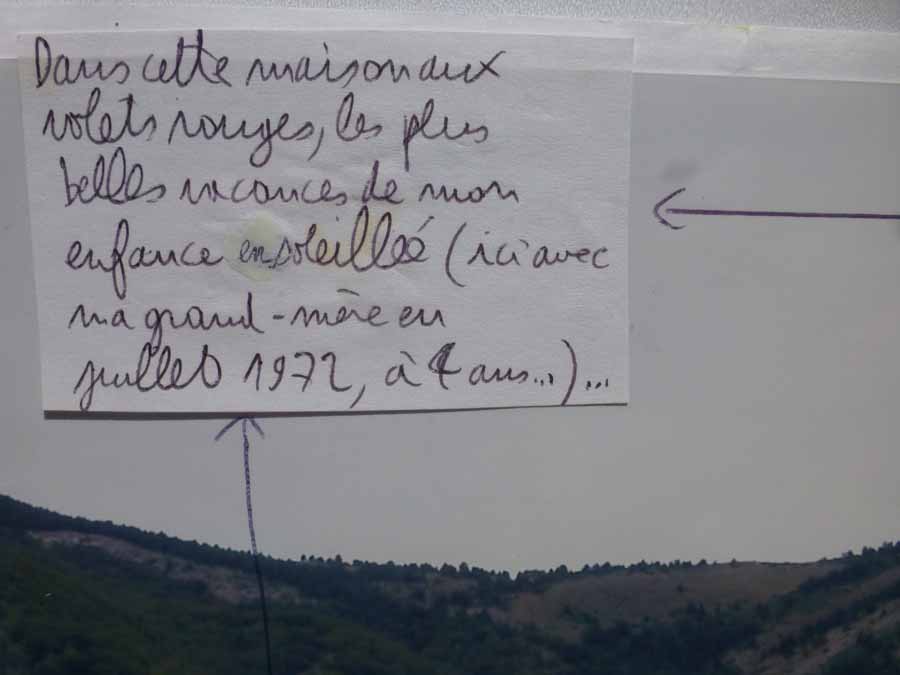 Dans cette maison aux
volets rouges, les plus
belles vacances de mon
enfance ensoleillé (ici avec
ma grand-mère en
juillet 1972, à 4 ans...)...